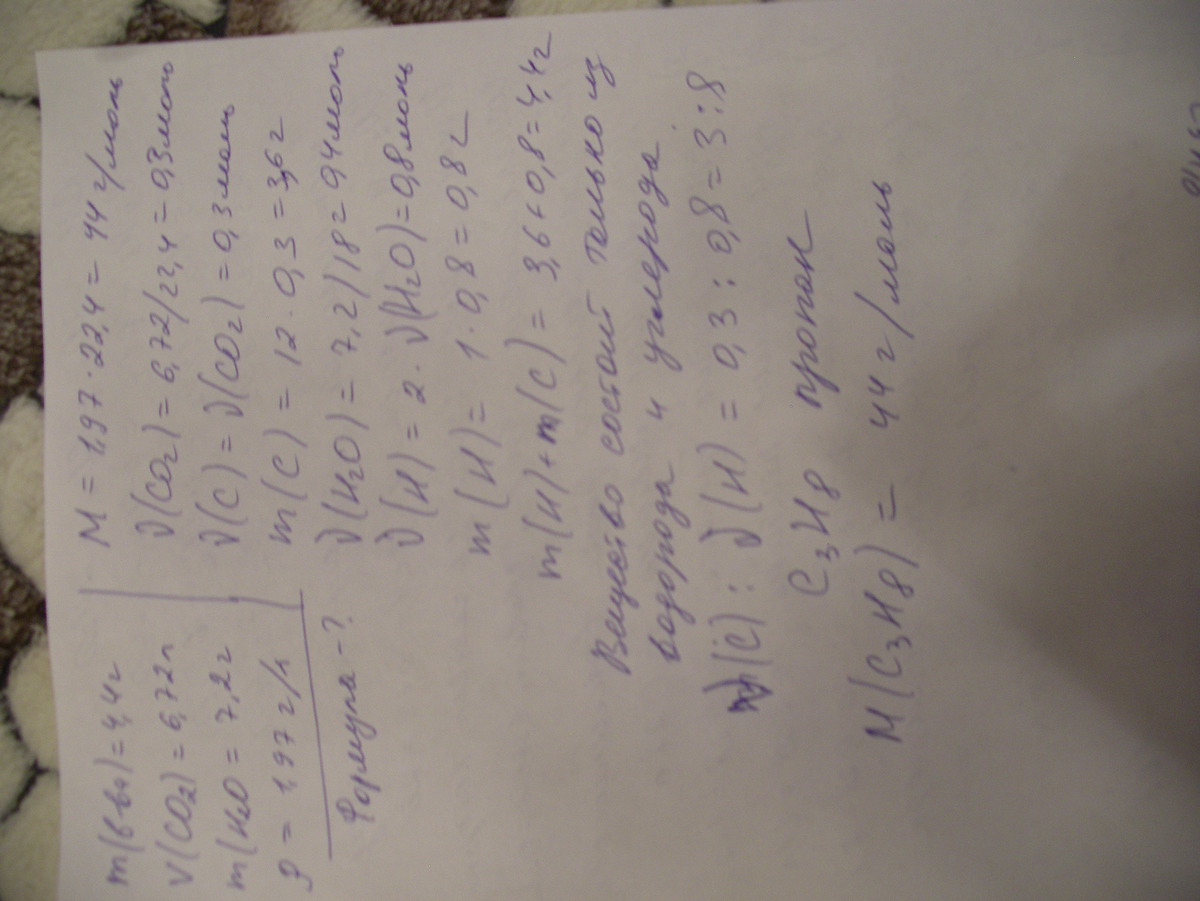 m(в-ва)=4,4г
V(CO2)=6,72л
m(H2O=7,2г
ρ = 1,97 г/л
Формула-?
M = 1,97·22,4 = 44 г/моль
ν(CO2) = 6,72/22,4 = 0,3моль
ν(C) = ν(CO2) = 0,3моль
m(C) = 12 · 0,3 = 3,6г
ν(H2O) = 7,2/18 = 0,4моль
ν(H) = 2·ν(H2O)=0,8моль
m(H) = 1·0,8 = 0,8г
m(H)+m(C) = 3,6+0,8=4,4г
Вещество состоит только из
водорода и углерода
ν(C) : ν(H) = 0,3 : 0,8 = 3:8
C3H8 пропан
M(C3H8) = 44 г/моль